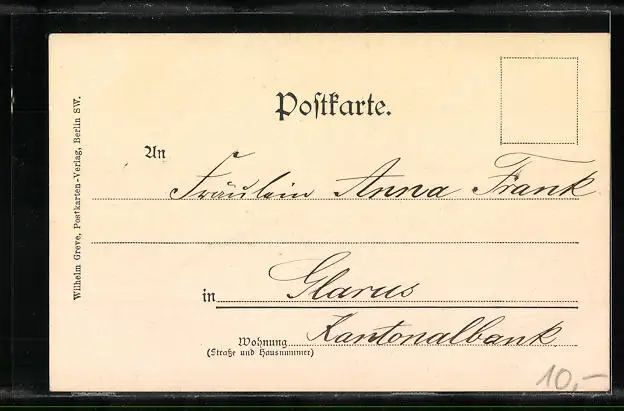 Postkarte.
An
Fräulein Anna Frank
in Glarus
Wohnung Kantonalbank
(Straße und Hausnummer)
Wilhelm Greve, Postkarten-Verlag, Berlin SW.
10,-